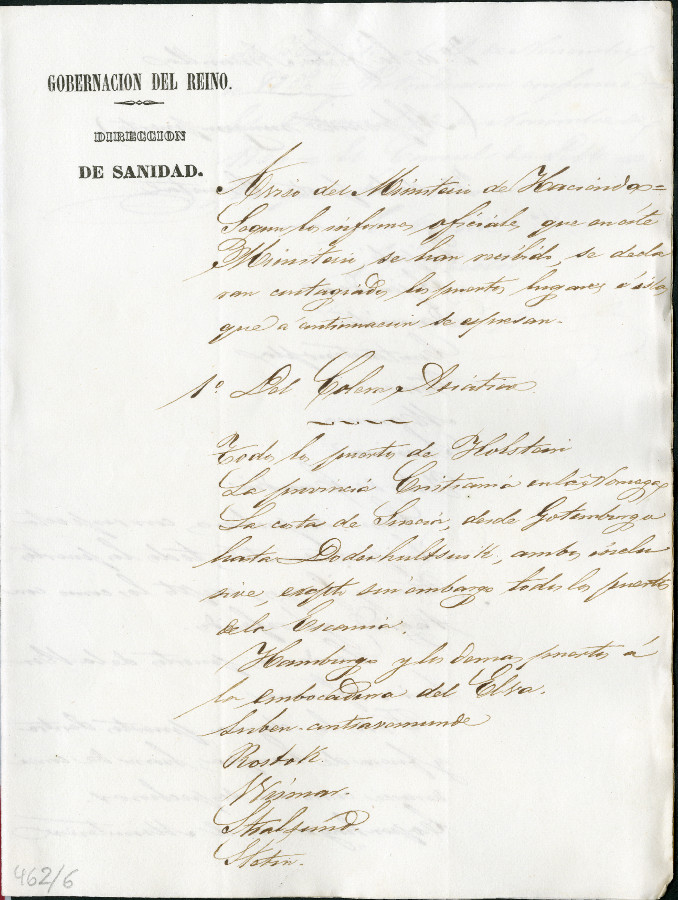 GOBERNACION DEL REINO.
DIRECCION
DE SANIDAD.
Aviso del Ministerio de Hacienda=
Segun los informes oficiales que en este
Ministerio, se han recibido, se decla
ran contagiados los puertos lugares é islas
que á continuacion se espresan.
1º. Del Colera Asiatico.
Todos los puertos de Holstein
La provincia Cristiania en la Noruega
La costa de Suecia, desde Gotemburgo
hasta Doderhultswik, ambos inclu
sive, escepto sin embargo todos los puertos
de la Escania.
Hamburgo y los demas puertos á
la embocadura del Elva.
Rostok.
Wismar.
Stralsund.
Stetin.
462/6